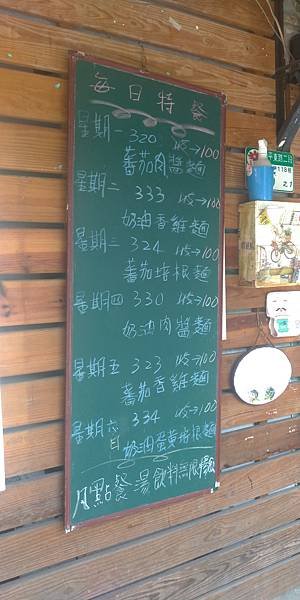 每日特餐
星期一 320 收→100
蕃茄肉醬麵
星期二 333 收→100
奶油香雞麵
星期三 324 收→100
蕃茄培根麵
星期四 330 收→100
奶油肉醬麵
星期五 323 收→100
蕃茄香雞麵
星期六 334 收→100
日 奶油蛋黃培根麵
凡點餐 湯飲料無限暢飲
平東路二段
118號